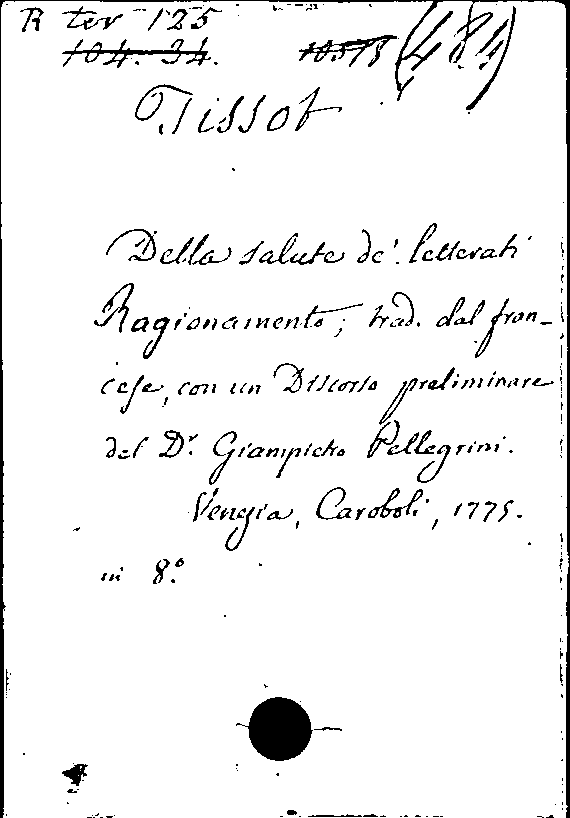 R ter 125
104. 34. 10575 (484)
Tissot
Della salute de'. letterati
Ragionamento; trad. dal fran-
cese, con un Discorso preliminare
del Dr. Giampietro Pellegrini.
Venezia, Caroboli, 1775.
in 8.º